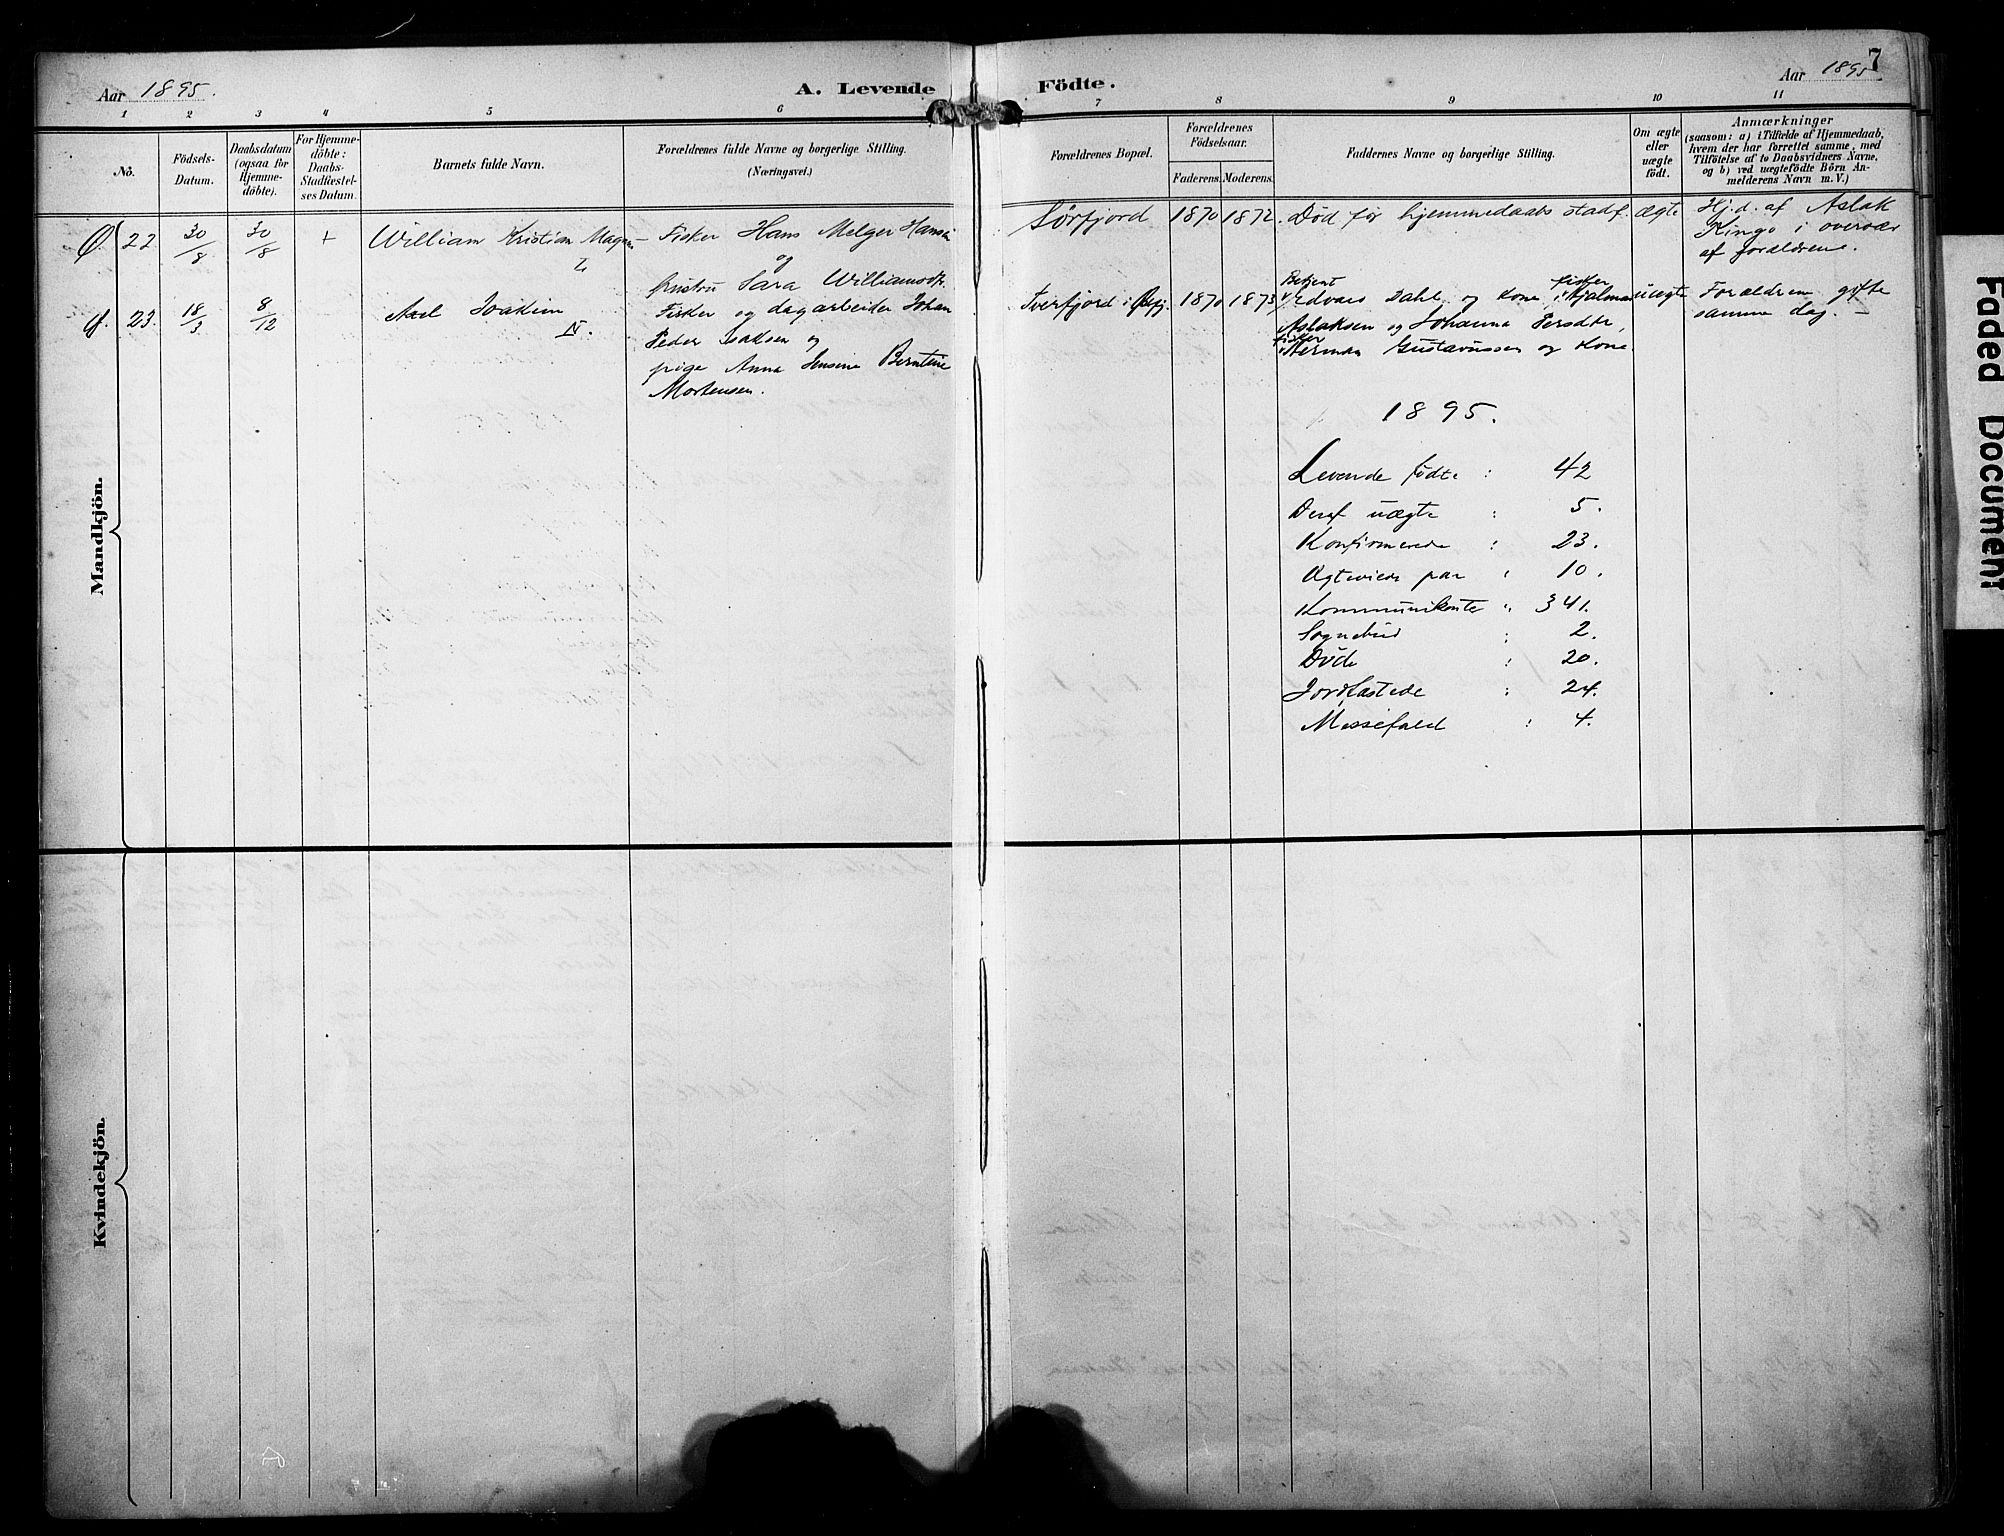 Aar 1895.
A. Levende Födte.
Aar 1895
7
1 2 3 4 5 6 7 8 9 10 11
No.
Födsels-
Datum.
Daabsdatum
(ogsaa for
Hjemme-
döbte).
For Hjemme-
döbte:
Daabs-
Stadfæstel-
ses Datum.
Barnets fulde Navn.
Forældrenes fulde Navne og borgerlige Stilling.
(Næringsvei.)
Forældrenes Bopæl.
Forældrenes
Födselsaar.
Faderens. Moderens.
Faddernes Navne og borgerlige Stilling.
Om ægte
eller
uægte
födt.
Anmærkninger
(saasom: a) i Tilfælde af Hjemmedaab,
hvem der har forrettet samme, med
Tilföielse af to Daabsvidners Navne,
og b) ved uægtefödte Börn An-
melderens Navn m. V.)
Mandkjön.
22 30/8 30/8 + William Kristian Magn-
Fisker Hans Melger Hansen
og
hustru Sara Williamsdtr.
Sørfjord 1870 1872. Død før hjemmedaabs stadf. ægte
Hj.d. af Aslak
Kingo i overvær
af forældrene.
23. 18/3 8/12 Axel Joakim
IV.
Fisker og dagarbeider Johan
Peder Isaksen og
pige Anna Jensine Berntine
Mortensen.
Tverfjord i 1870 1873
Betjent
Edvard Dahl og kone, fisker Hjalmar
Aslaksen og Johanna Persdtr,
fisker
Herman Gustavussen og kone.
uægte
Forældren gifte
samme dag. —
1895.
Levende fødte : 42
Deraf uægte : 5.
Konfirmerede : 23.
Ægteviede par : 10.
Kommunikanter : 341.
Sognebud : 2.
Døde : 20.
Jordfæstede : 24.
Messefald : 4.
Kvindekjön.
Faded Document